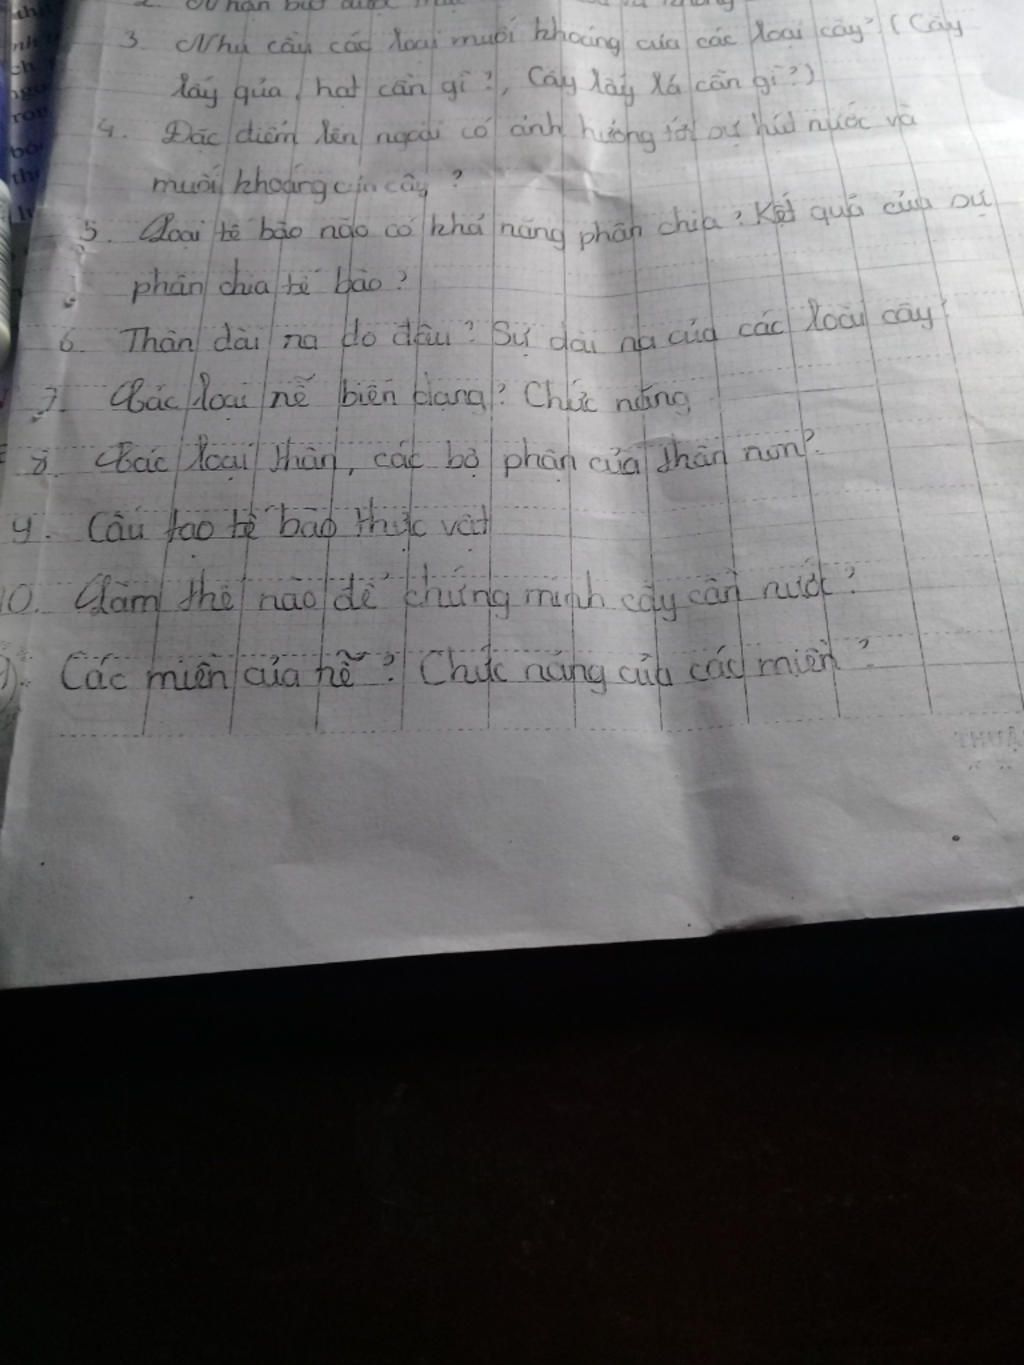 3. Nhu cầu các loại muối khoáng của các loại cây? (Cây
lấy qủa, hạt cần gì?, Cây lấy lá cần gì?)
4. Đặc điểm bên ngoài có ảnh hưởng tới sự hút nước và
muối khoáng của cây?
5. Loại tế bào nào có khả năng phân chia? Kết quả của sự
phân chia tế bào?
6. Thân dài ra do đâu? Sự dài ra của các loài cây?
7. Các loại rễ biến dạng? Chức năng
8. Các loại thân, các bộ phận của thân non?
9. Cấu tạo tế bào thực vật
10. Làm thế nào để chứng minh cây cần nước?
Các miền của rễ? Chức năng của các miền?